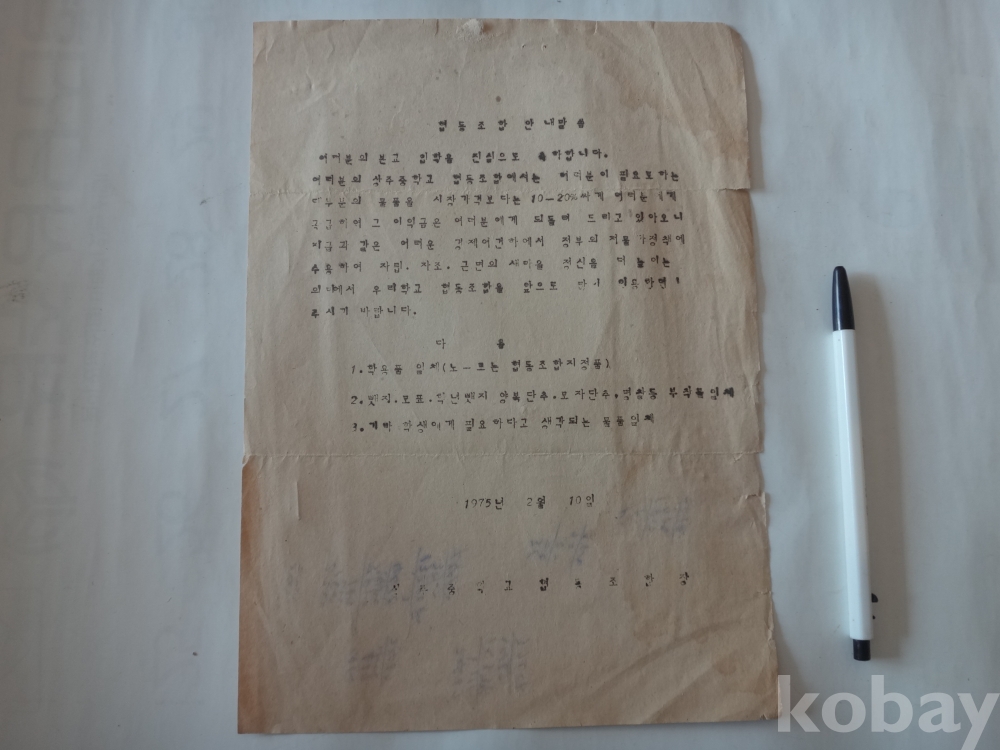 협동조합 안내말씀
여러분의 본교 입학을 진심으로 축하합니다.
여러분의 상주중학교 협동조합에서는 여러분이 필요로 하는
물품을 시장가격보다는 10-20%싸게 여러분에게
공급하여 그 이익금은 여러분에게 되돌려 드리고 있아오니
지금과 같은 어려운 경제여건하에서 정부의 저물가정책에
추종하여 자립. 자조. 근면의 새마을 정신을 더 높이는
의미에서 우리학교 협동조합을 앞으로 많이 이용하여
주시기 바랍니다.
다 음
1.학용품 일체(노-트는 협동조합지정품)
2.뺏지.모표.학년뺏지 양복단추.모자단추.명찰등 부착물일체
3.기타 학생에게 필요하다고 생각되는 물품일체
1975년 2월 10일
상주중학교 협동조합장
kobay